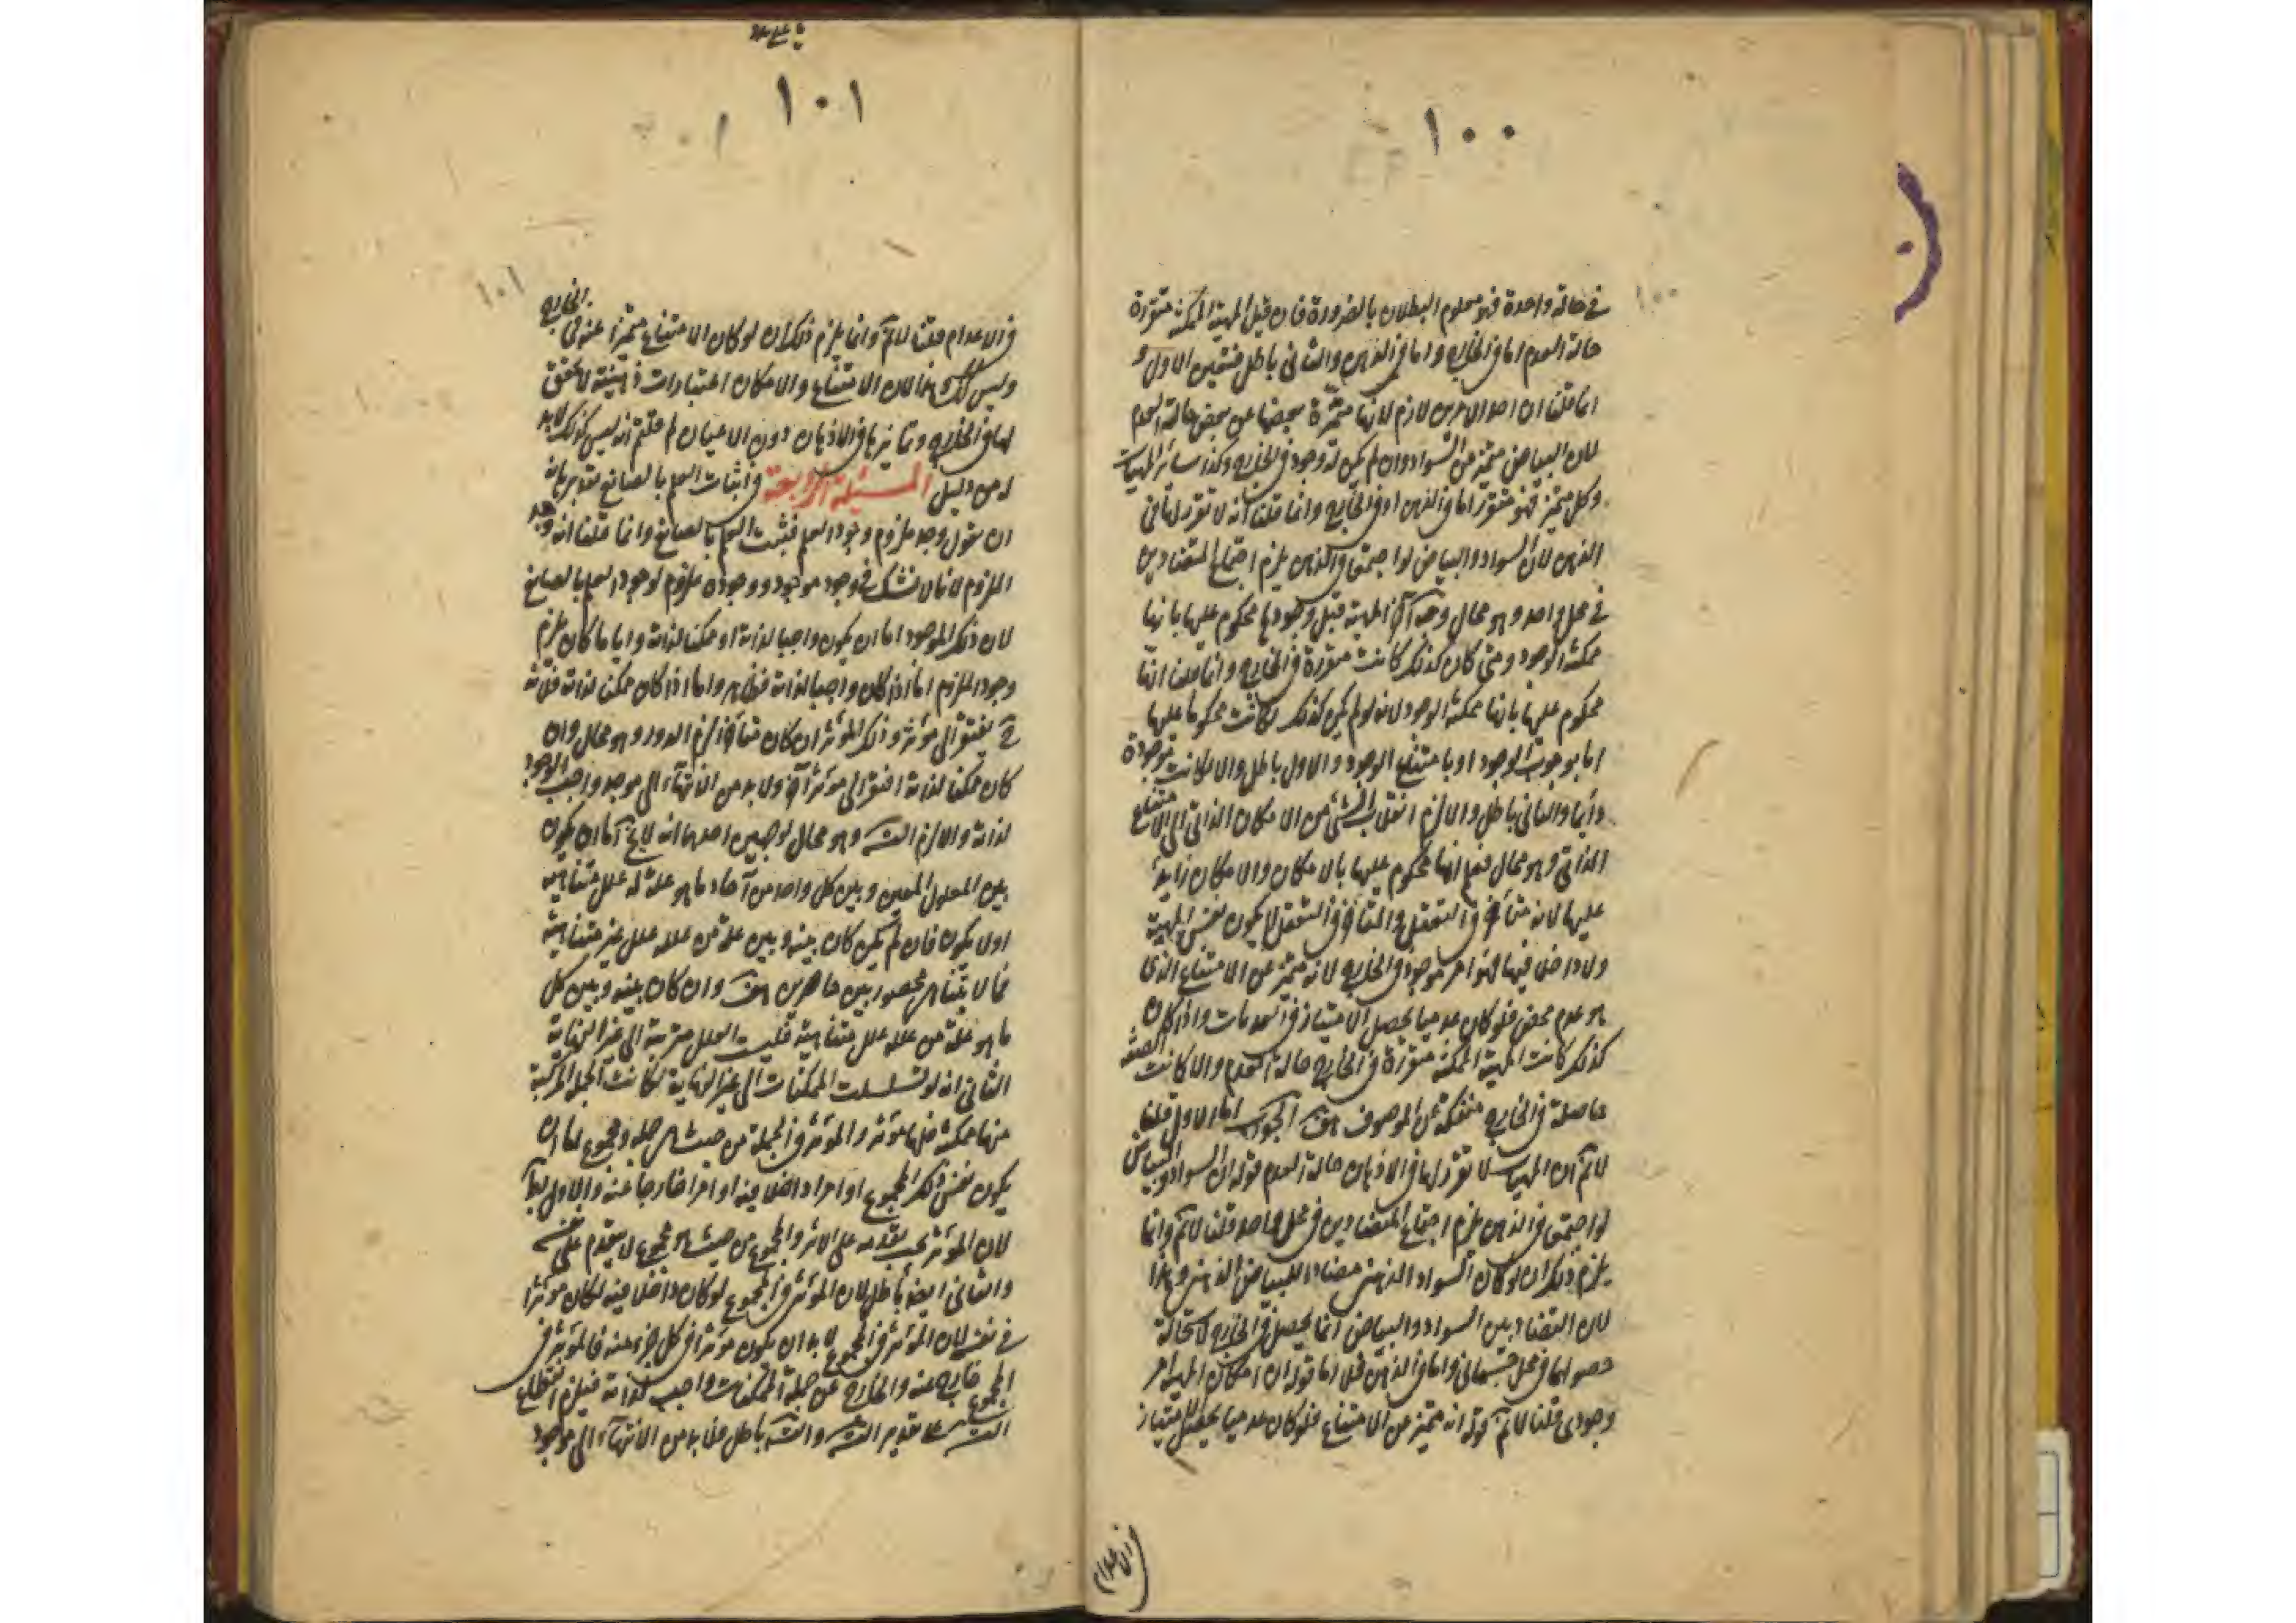 ١٠٠
١٠٠
في حالة واحدة فهو معلوم البطلان بالضرورة فان قيل المهية الممكنة متقررة
حالة العدم اما في الخارج واما في الذهن والثاني باطل فتعين الاول و
انما قلنا ان احد الامرين لازم لانها متميزة بعضها عن بعض حالة العدم
لان البياض متميز من السواد وان لم يكن له وجود في الخارج وكذا سائر المهيات
وكل متميز فهو متقرر اما في الذهن او في الخارج وانما قلنا انه لا تقرر لها في
الذهن لان السواد والبياض لو اجتمعا في الذهن يلزم اجتماع المتضادين
في محل واحد وهو محال وجه آخر المهية قبل وجودها محكوم عليها بانها
ممكنة الوجود ومتى كان كذلك كانت متقررة في الخارج وانما قلنا انها
محكوم عليها بانها ممكنة الوجود لانه لو لم يكن كذلك لكانت محكوما عليها
اما بوجوب الوجود او بامتناع الوجود والاول باطل والا لكانت موجودة
دايما والثاني باطل والا لزم انقلاب الشئ من الامكان الذاتي الى الامتناع
الذاتي وهو محال فعلم انها محكوم عليها بالامكان والامكان زايد
عليها لانه متأخر في التعقل والمتأخر في التعقل لا يكون نفس المهية
ولا داخلا فيها فهو امر موجود في الخارج لانه متميز عن الامتناع الذي
هو عدم محض فلو كان عدميا يحصل الامتياز في العدمات واذا كان
كذلك كانت المهية الممكنة متقررة في الخارج حالة العدم والا كانت الصفة
حاصلة في الخارج منفكة عن الموصوف هف الجواب اما الاول قلنا
لانم ان المهيات لا تقرر لها في الاذهان حالة العدم قوله ان السواد والبياض
لو اجتمعا في الذهن يلزم اجتماع المتضادين في محل واحد قلنا لانم وانما
يلزم ذلك ان لو كان السواد الذهني مضادا للبياض الذهني وهذا
لان التضاد بين السواد والبياض انما يحصل في الخارج لاستحالة
حصولهما في محل جسماني واما في الذهن فلا اما قوله ان امكان المهية امر
وجودي قلنا لانم قوله انه متميز من الامتناع فلو كان عدميا يحصل الامتياز
في الاعدام
١٠١
١٠١
في الاعدام قلنا لانم وانما يلزم ذلك ان لو كان الامتناع متميزا عنه في الخارج
وليس كذلك وهذا لان الامتناع والامكان اعتبارات ذهنية لا تحقق
لها في الخارج وتمايزها في الاذهان دون الاعيان لم قلتم انه ليس كذلك لا بد
له من دليل المسئلة الرابعة في اثبات العلم بالصانع تقديره انه
ان نقول وجد ملزوم وجود العلم فيثبت العلم بالصانع وانما قلنا انه وجد
الملزوم لانا لا نشك في وجود موجود ووجوده ملزوم لوجود العلم بالصانع
لان ذلك الموجود اما ان يكون واجبا لذاته او ممكنا لذاته وايا ما كان يلزم
وجود الملزوم اما اذا كان واجبا لذاته فظاهر واما اذا كان ممكن لذاته فلانه
ح يفتقر الى مؤثر وذلك المؤثر ان كان متأخرا لزم الدور وهو محال وان
كان ممكنا لذاته افتقر الى مؤثر آخر ولا بد من الانتهاء الى موجد واجب الوجود
لذاته والا لزم التسه وهو محال لوجهين احدهما انه لا يخ اما ان يكون
بين المعلول المعين وبين كل واحد من آحاد ما هو علة له علل متناهية
او لا يكون فان لم يكن كان بينه وبين علة من علله علل غير متناهية
فما لا يتناهى محصور بين حاصرين هف وان كان بينه وبين كل
ما هو علة من علله علل متناهية فليست العلل مترتبة الى غير النهاية
الثاني انه لو تسلسلت الممكنات الى غير النهاية لكانت الجملة المركبة
منها ممكنة فلها مؤثر والمؤثر في الجملة من حيث هي جملة ومجموع اما ان
يكون نفس ذلك المجموع او امرا داخلا فيه او امرا خارجا عنه والاول بط
لان المؤثر يجب تقدمه على الاثر والمجموع من حيث هو مجموع لا يتقدم على نفسه
والثاني ايضا باطل لان المؤثر في المجموع لو كان داخلا فيه لكان مؤثرا
في نفسه لان المؤثر في المجموع لا بد ان يكون مؤثرا في كل جزء منه فالمؤثر في
المجموع خارج عنه والخارج عن جملة الممكنات واجب لذاته فيلزم انقطاع
التسلسل على تقدير التسه والتسه باطل فلا بد من الانتهاء الى موجود